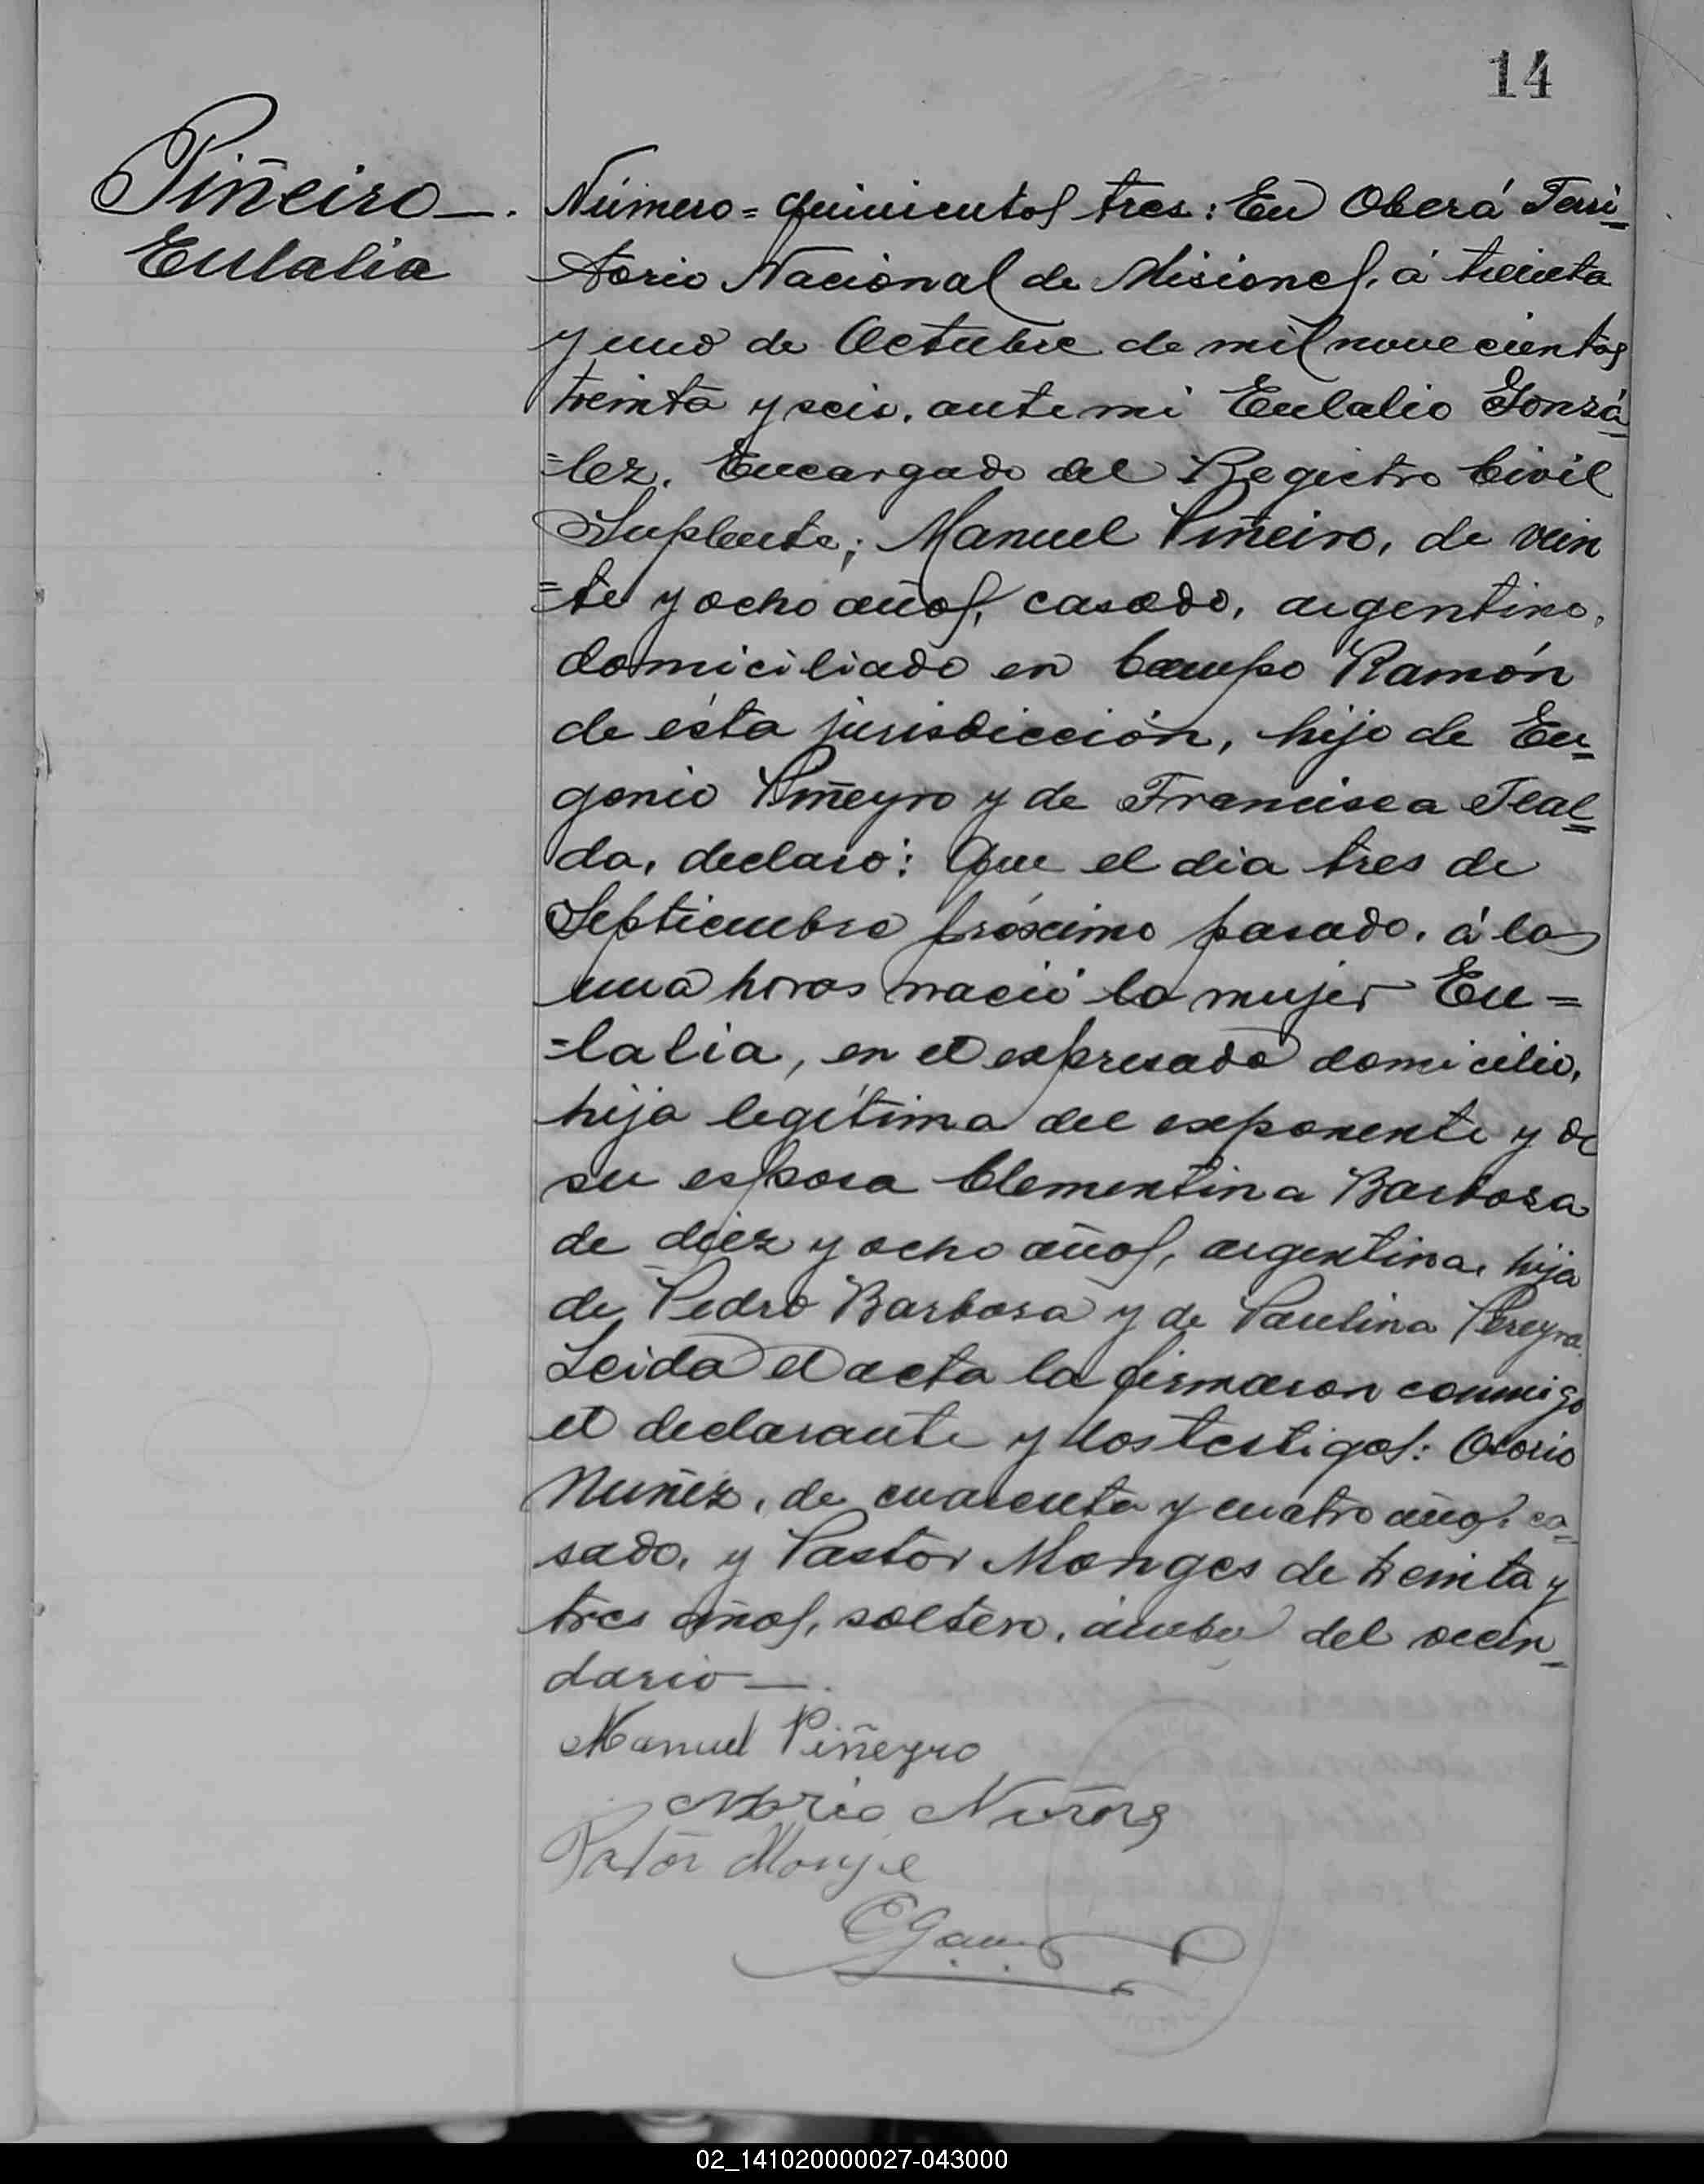 14
Piñeiro—.
Eulalia
Número = quinientos tres: En Oberá Terri=
torio Nacional de Misiones, á treinta
y uno de Octubre de mil novecientos
treinta y seis, ante mi Eulalio Gonzá=
=lez, Encargado del Registro Civil
Suplente; Manuel Piñeiro, de vein
=te y ocho años, casado, argentino,
domiciliado en Campo Ramón
de ésta jurisdicción, hijo de Eu=
genio Piñeyro y de Francisca Teal=
da, declaró: Que el dia tres de
Septiembre próximo pasado, á la
una horas nació la mujer Eu=
=lalia, en el expresado domicilio,
hija legítima del exponente y de
su esposa Clementina Barbosa
de diez y ocho años, argentina, hija
de Pedro Barbosa y de Paulina Pereyra.
Leida el acta la firmaron conmigo
el declarante y los testigos: Osorio
Nuñez, de cuarenta y cuatro años, ca=
sado, y Pastor Monges de treinta y
tres años, soltero, ámbos del vecin=
dario—.
Manuel Piñeyro
Nuñes
Pastor Monje
02_141020000027-043000